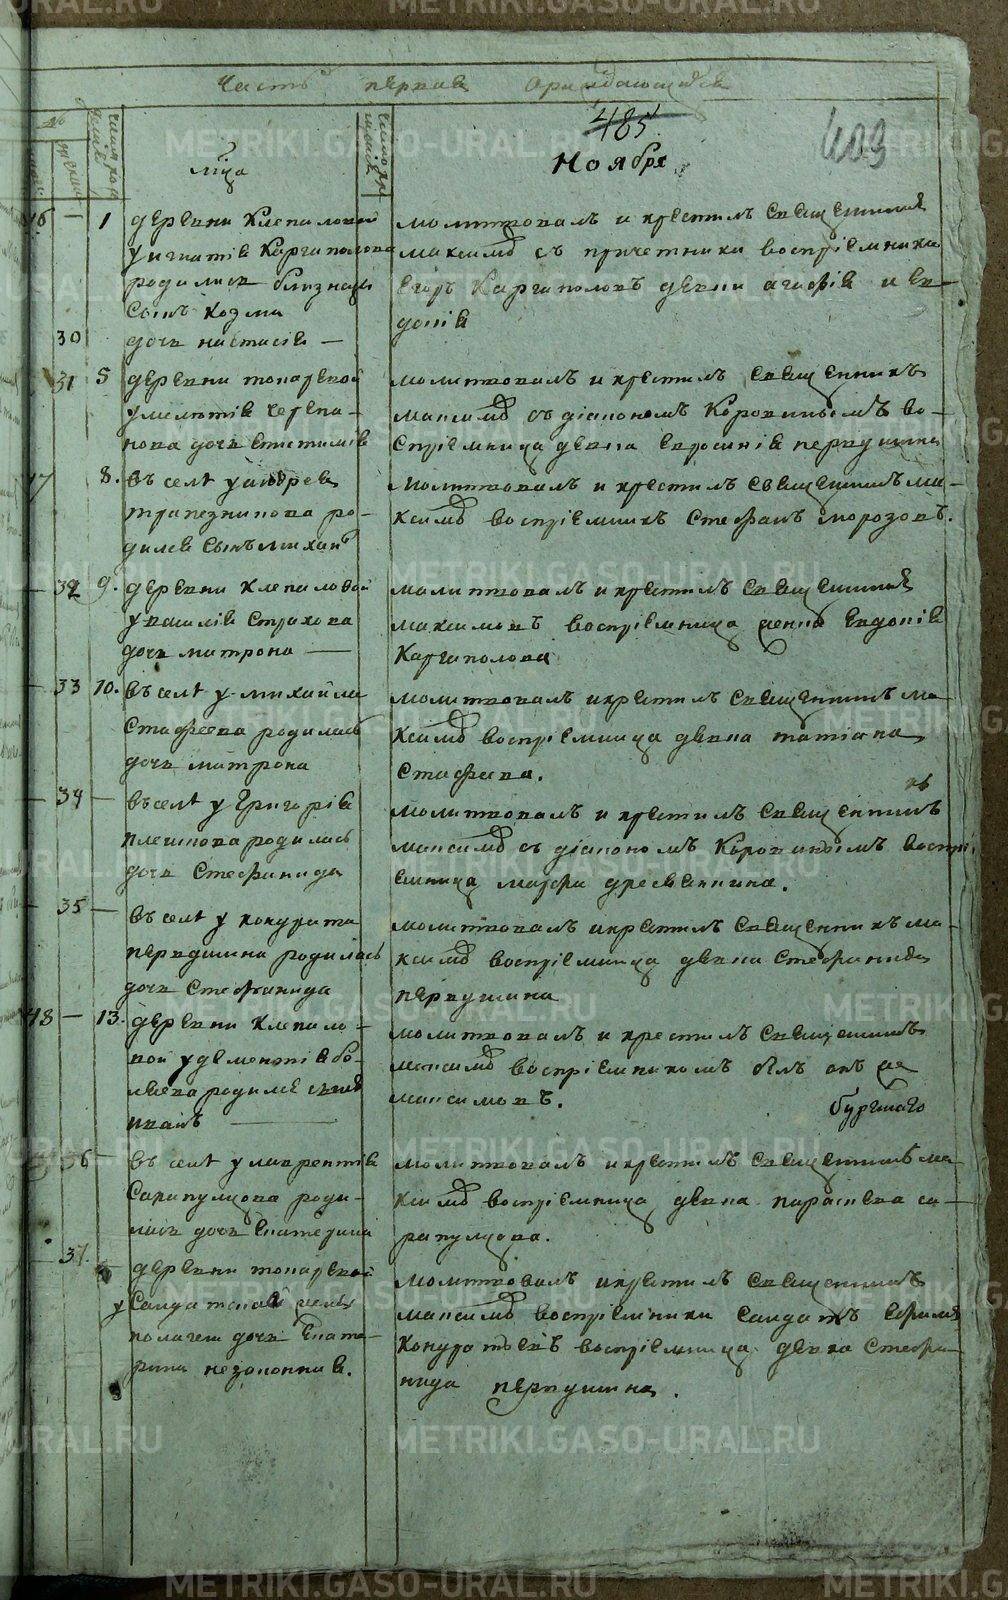 METRIKI.GASO-URAL.RU
Часть первая о раждающихся
485
409
Ноября
лица
46 — 1 деревни Клепаловой
у игнатiя Каргаполова
родились близнецы
сынъ Козма
30 дочь настасiя —
молитвовалъ и крестилъ священникъ
максимовъ съ причетники воспрiемники
Егоръ Каргаполовъ девки агафiя и ев-
докiя
31 5 деревни
у мелентiя черепа-
нова дочь
молитвовалъ и крестилъ священникъ
максимовъ съ дiакономъ Коровинымъ во-
спрiемница девка Евросинiя первушина
47 8. въ селѣ у андрея
трапезникова ро-
дился сынъ михаилъ
молитвовалъ и крестилъ священникъ ма-
ксимовъ воспрiемникъ Стефанъ морозовъ.
32 9. деревни Клепаловой
у василiя Страхова
дочь матрона —
молитвовалъ и крестилъ священникъ
максимовъ воспрiемница женка Евдокiя
Каргаполова
33 10. въ селѣ у михайла
Стафеева родилась
дочь матрона
молитвовалъ и крестилъ священникъ ма-
ксимовъ воспрiемница девка татiана
Стафеева.
34 — въ селѣ у Григорiя
плешкова родилась
дочь Стефанида
молитвовалъ и крестилъ священникъ
максимовъ съ дiакономъ Коровинымъ воспрi-
емница марфа дресвянкина.
35 — въ селѣ у кондрата
первушина родилась
дочь Стефанида
молитвовалъ и крестилъ священникъ ма-
ксимовъ воспрiемница девка Стефанида
первушина
48 — 13. деревни Клепало-
вой у дементiя бо-
родился сынъ
иванъ —
молитвовалъ и крестилъ священникъ
максимовъ воспрiемникомъ былъ онъ же
максимовъ.
36 — въ селѣ у лаврентiя
Сарапулцова роди-
лась дочь Екатерина
молитвовалъ и крестилъ священникъ ма-
ксимовъ воспрiемница девка параскева са-
рапулцова.
37. деревни
у Салдатской женки
дочь Екате-
рина незаконная.
молитвовалъ и крестилъ священникъ
максимовъ воспрiемники Салдатъ Ефимъ
Кондратьевъ воспрiемница девка Стефа-
нида первушина.